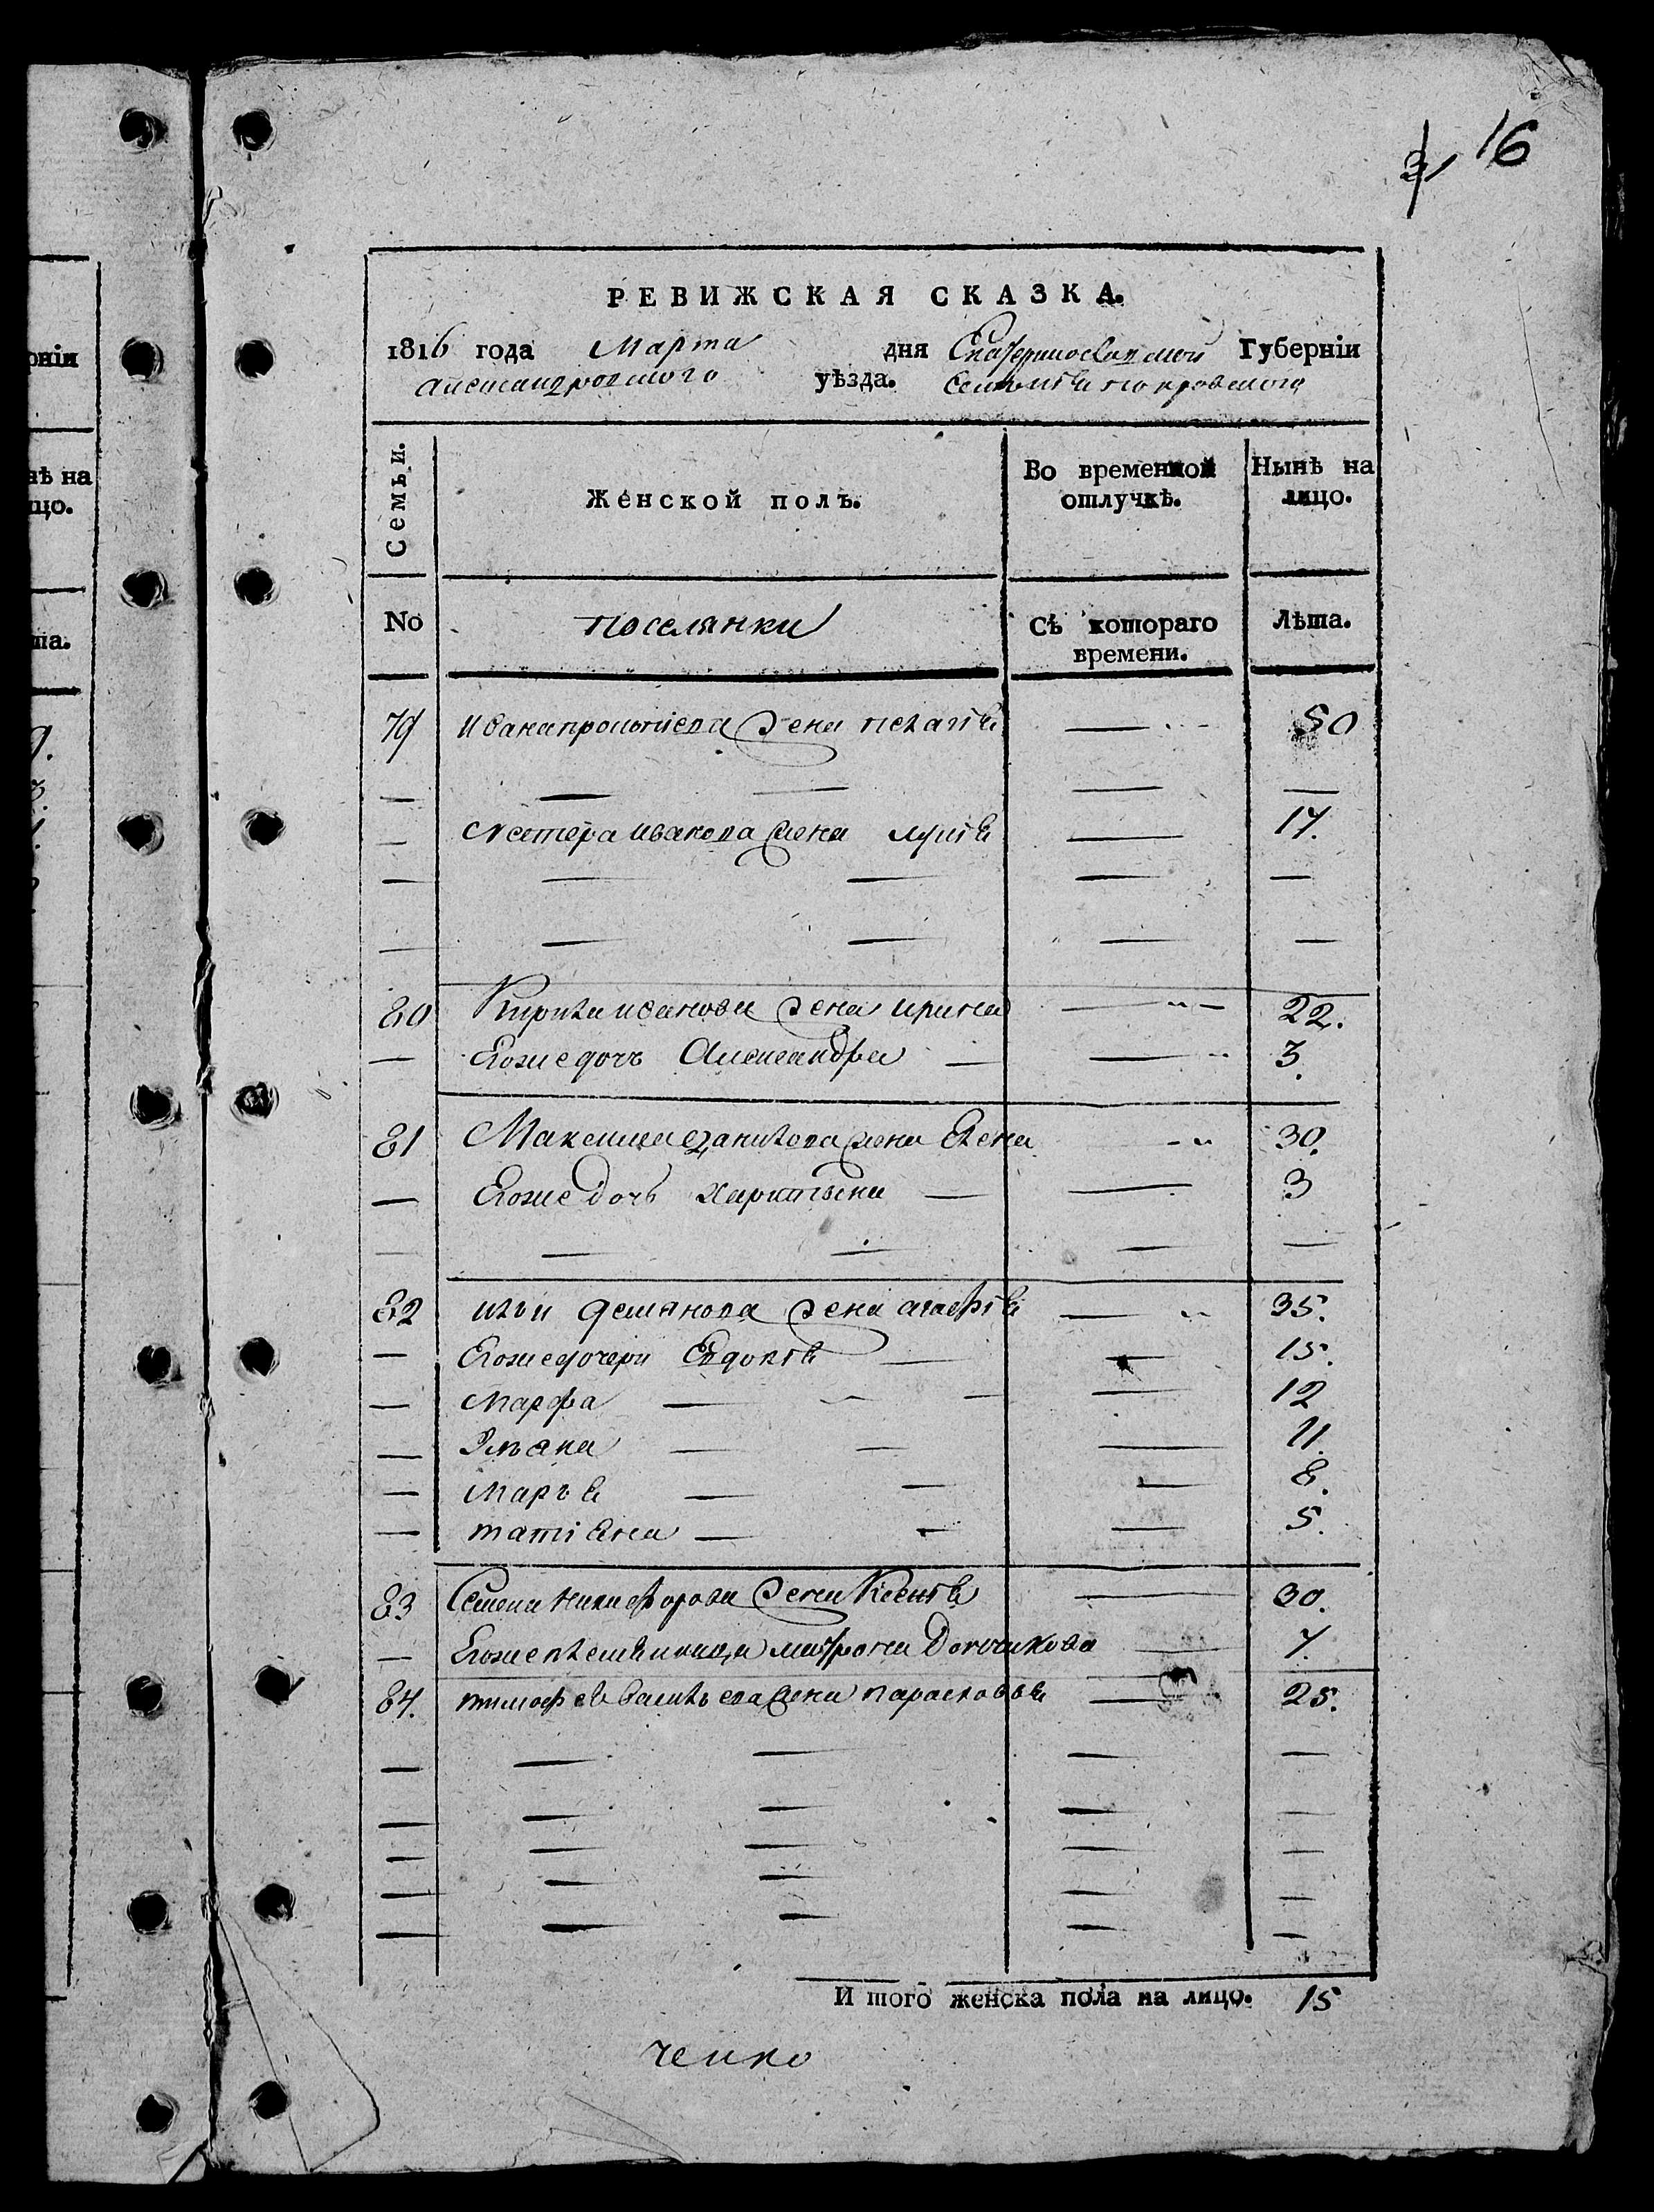 16
РЕВИЖСКАЯ СКАЗКА.
1816 года Марта дня Екатеринославской Губерніи
Александровского уѣзда. Селенія покровского
Семьи.
Женской полъ.
Во временной отлучкѣ.
Нынѣ на лицо.
No
поселянки
Съ котораго времени.
Лѣта.
79 Ивана прокопіева жена пелагія — 50
— — — — —
— Нестера Иванова жена — 17.
— — — — —
— — — — —
80 Кирила иванова жена ирина — 22.
— Егоже дочъ Александра — — 3.
81 Максима данилова жена Елена 30.
— Егоже дочъ Харитына — — 3
— — — — —
82 ильи демянова жена агафія — 35.
— Егоже дочери Евдокія — — 15.
— Марфа — — — 12
— Ульяна — — — 11.
— Марья — — — 8.
— татіяна — — — 5.
83 Семена никифорова жена Ксенія — 30.
— Егоже племяница матрона — 7.
84. тимофея василъева жена парасковья — 25.
— — — — —
— — — — —
— — — — —
— — — — —
— — — — —
И того женска пола на лицо. 15
ченко
оніи
нѣ на
цо.
та.